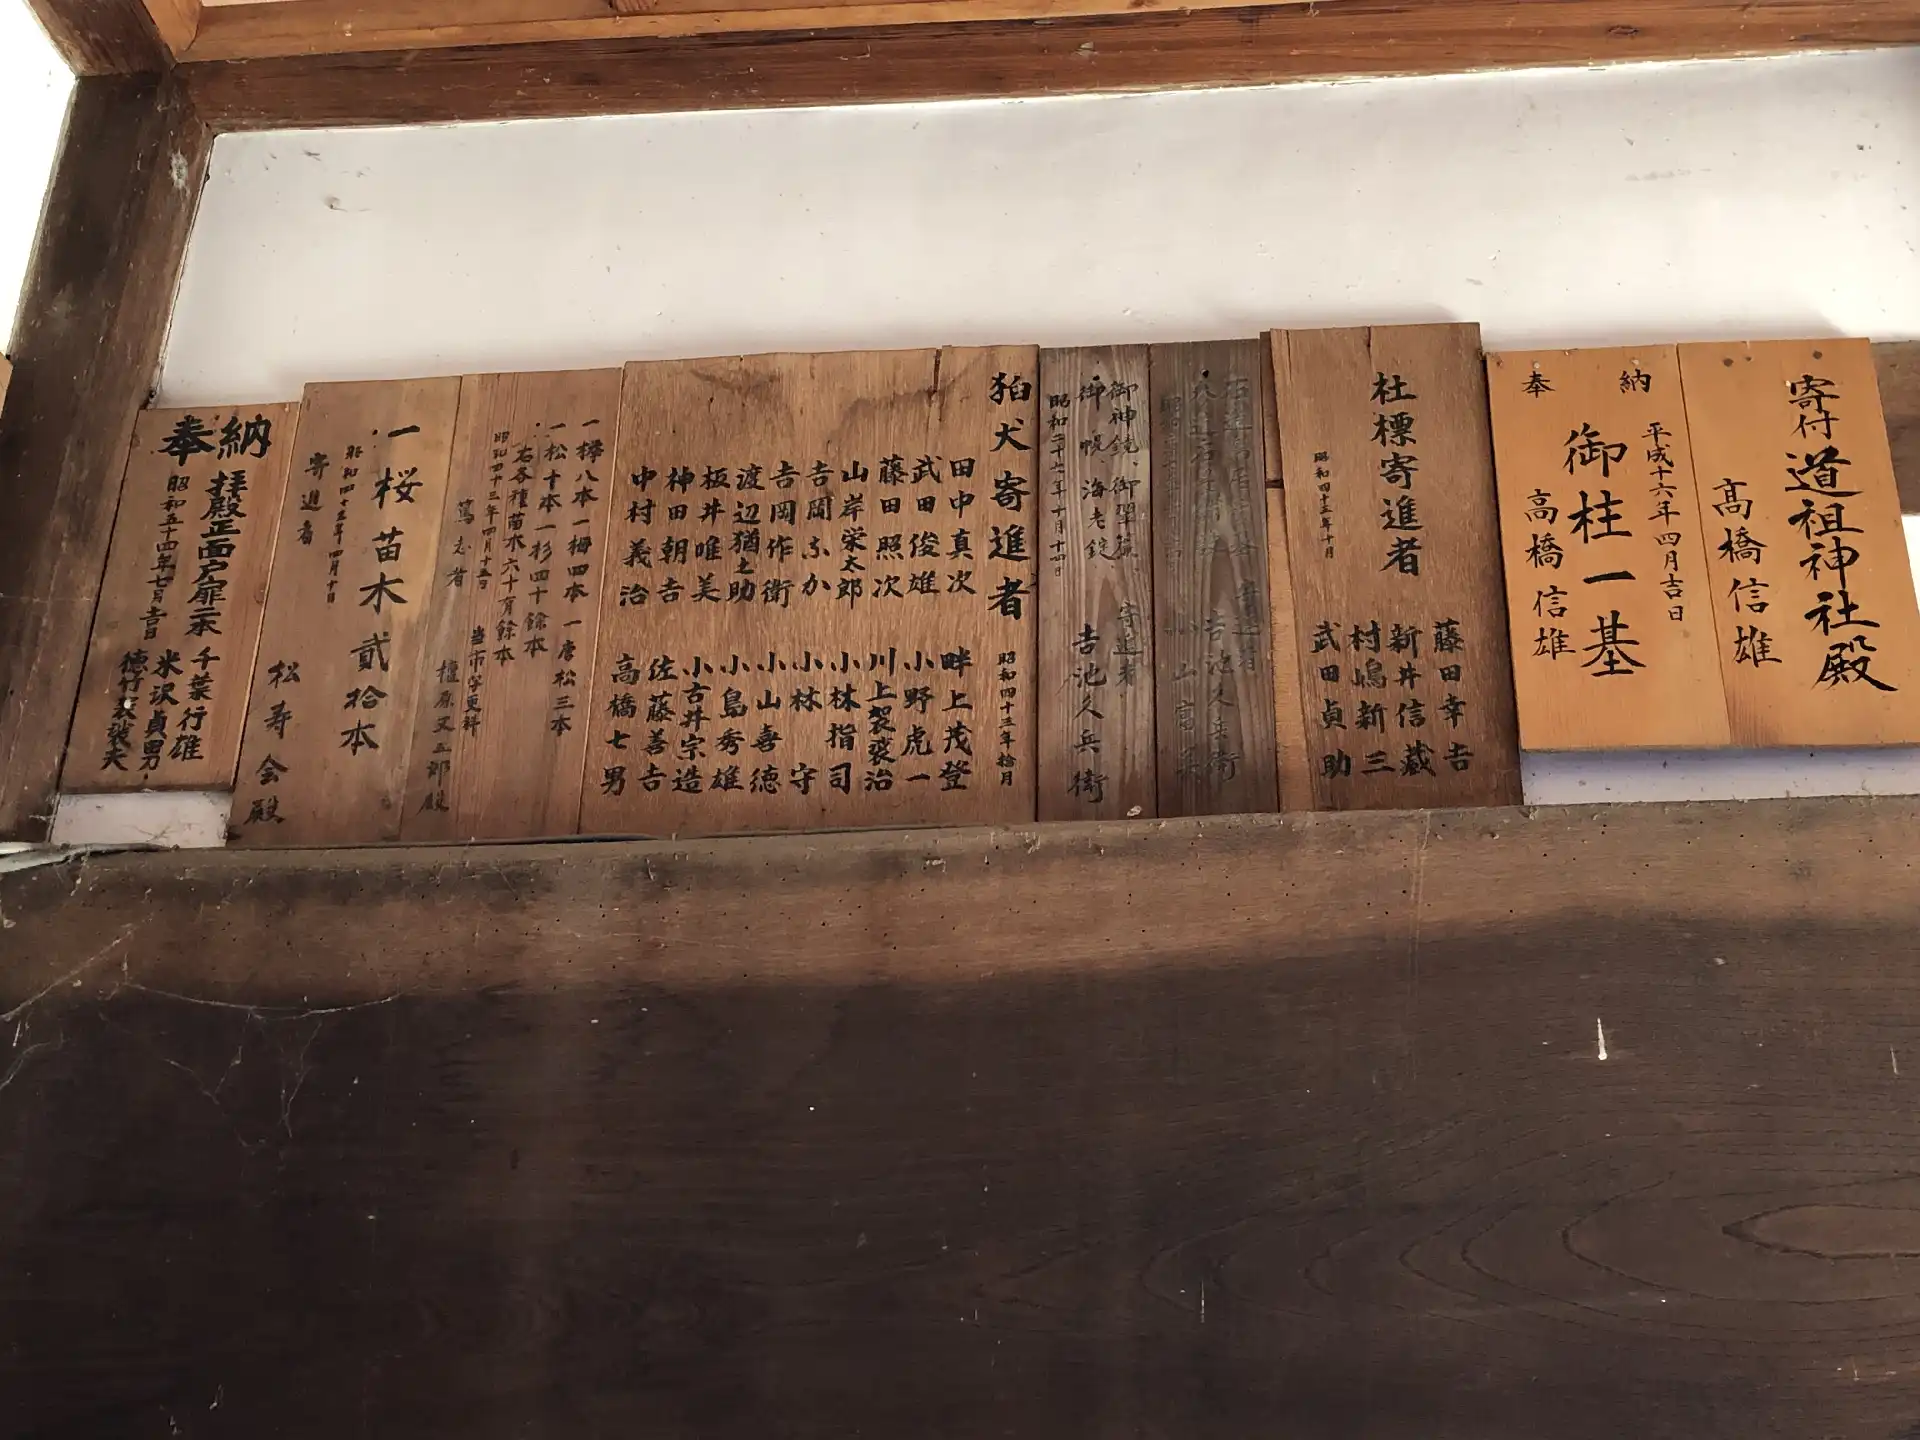 寄付道祖神社殿
高橋信雄
奉納
平成十六年四月吉日
御柱一基
高橋信雄
社標寄進者
藤田幸吉
新井信蔵
村嶋新三
武田貞助
昭和四十三年十月
寄進者
吉池久兵衛
御神鏡、御翠簾、
寄進者
御幌、海老錠
吉池久兵衛
狛犬寄進者
昭和四十三年拾月
田中真次
武田俊雄
藤田照次
山岸栄太郎
吉岡ふか
吉岡作衛
渡辺猶之助
板井唯美
神田朝吉
中村義治
畔上茂登
小野虎一
川上袈裟治
小林指司
小林守
小山喜徳
小島秀雄
小古井宗造
佐藤善吉
高橋七男
一欅八本一栂四本一唐松三本
一松十本一杉四十餘本
右各種苗木六十有餘本
昭和四十三年四月十五日
当市字更科
篤志者
檀原又五郎殿
一桜苗木貳拾本
寄進者
松寿会殿
奉納
拝殿正面戸扉二本
千葉行雄
昭和五十四年七月吉日
米沢貞男
徳竹袈裟夫